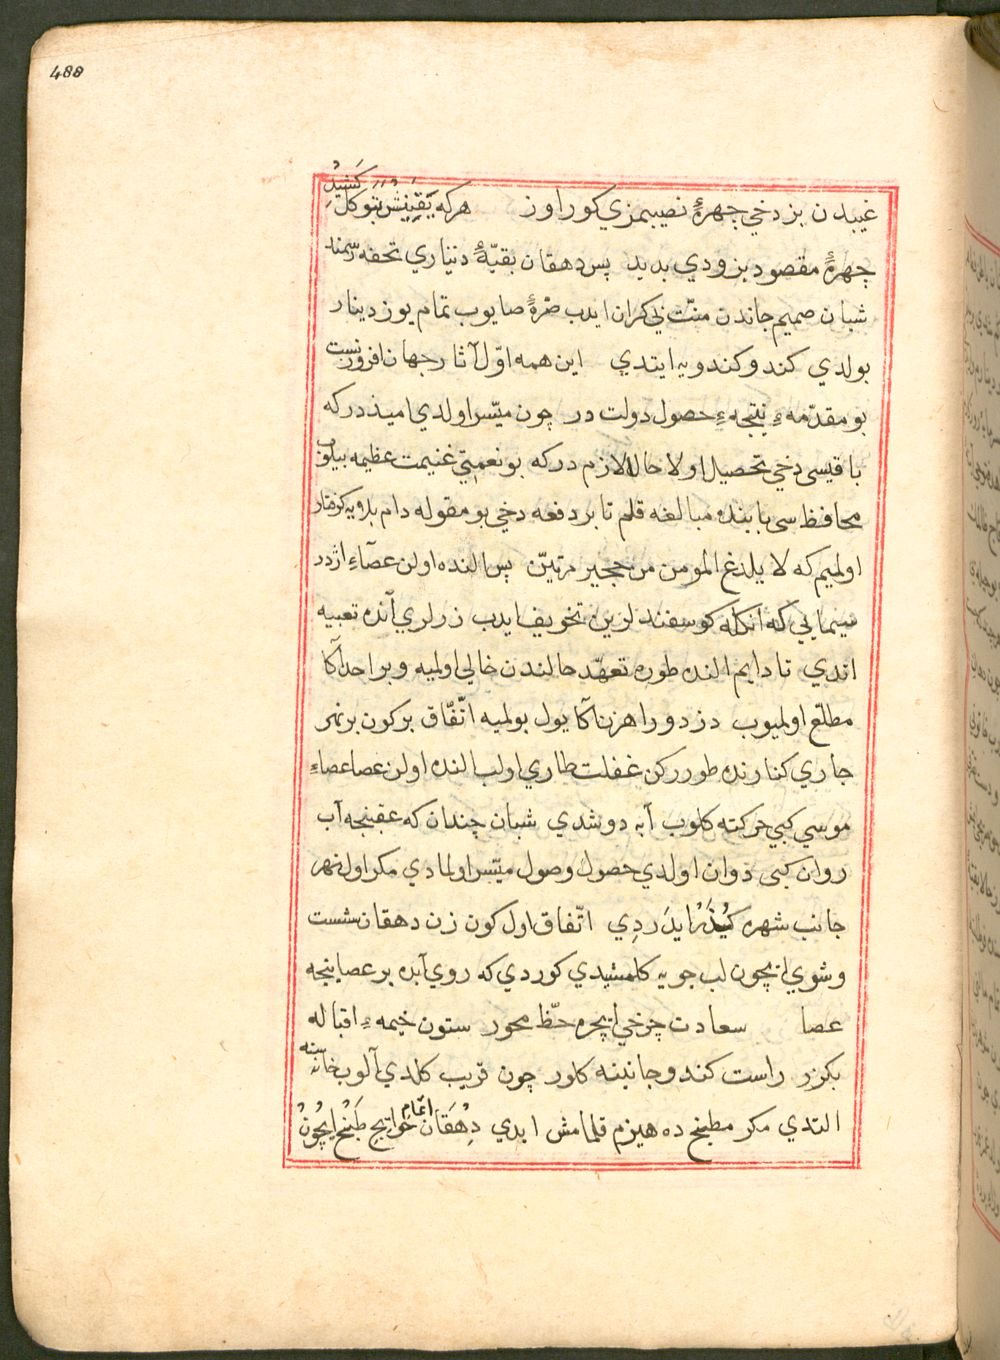 488
غيبدن بز دخي چهرهٔ نصيبمزي كوراوز هركه يقينش بتوكل كشيد
چهرهٔ مقصود بزودي بديد پس دهقان بقيّهٔ ديناري تحفه رسمند
شبان صميم جاندن منّت بي كران ايدب صرّهٔ صايوب تمام يوز دينار
بولدي كندو كندويه ايتدي اين همه اوّل آثار جهان افروزنست
بو مقدّمهء نتيجهء حصول دولت در چون ميسّر اولدي اميذدر كه
باقيسى دخي تحصيل اولا حالا لازم در كه بو نعمتي غنيمت عظيمه بيلوب
محافظه سى بابنده مبالغه قلم تا بر دفعه دخي بو مقوله دام بلايه كرفتار
اولميم كه لا يلدغ المومن من حجر مرتين پس النده اولن عصآءِ اژدر
سيمايي كه انكله كوسفندلرين تخويف ايدب زرلري آنده تعبيه
اتدي تا دايم النده طوره تعهّد حالندن خالي اولميه و بر احد آكا
مطلّع اولميوب دزد و راهزن آكا يول بولميه اتّفاق بركون بر نهر
جاري كنارنده طوررکن غفلت طاري اولب النده اولن عصا عصاءِ
موسي كبي حركته كلوب آبه دوشدي شبان چندان كه عقبنجه آب
روان كبى دوان اولدي حصول وصول ميسّر اولمادي مكر اول نهر
جانب شهره كذر ايدردي اتّفاق اول كون زن دهقان شست
و شوي ايچون لب جويه كلمشيدي كوردي كه روي آبده بر عصا ينجه
عصا سعادت چرخي ايچره حظّ محور ستون خيمهء اقباله
بكزر راست كندو جانبنه كلور چون قريب كلدي آلوب خانه سنه
التدي مكر مطبخ ده هيزم قلمامش ايدي دهقان اتمام حوايج طبخ ايچون